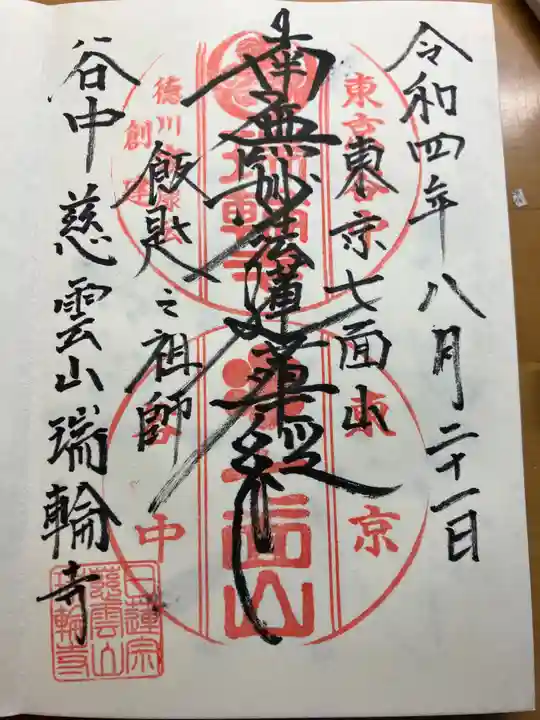 令和四年八月二十一日
東京七面山
南無妙法蓮華経
飯匙之祖師
谷中 慈雲山瑞輪寺
東京谷中
瑞輪寺
徳川家康公
創建
東京
七面山
谷中
日蓮宗
慈雲山
瑞輪寺